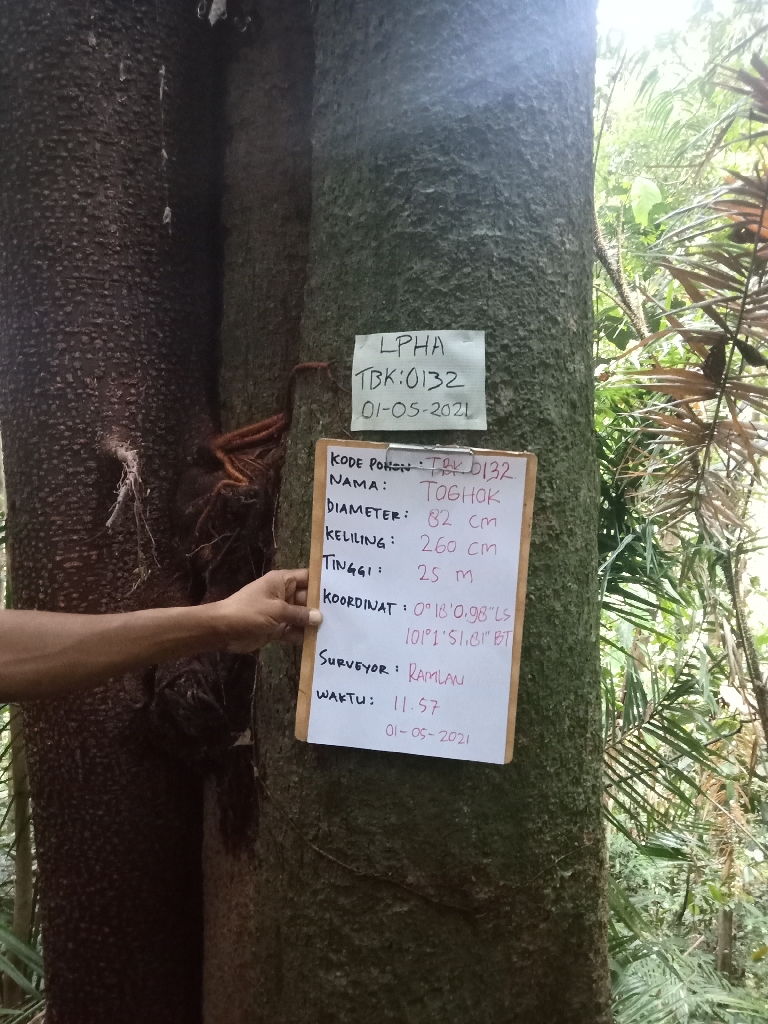 LPHA
TBK:0132
01-05-2021
KODE POHON : TBK 0132
NAMA : TOGHOK
DIAMETER : 82 cm
KELILING : 260 cm
TINGGI : 25 m
KOORDINAT : 0°18'0,98"LS
101°1'51,81" BT
SURVEYOR : RAMLAN
WAKTU : 11.57
01-05-2021